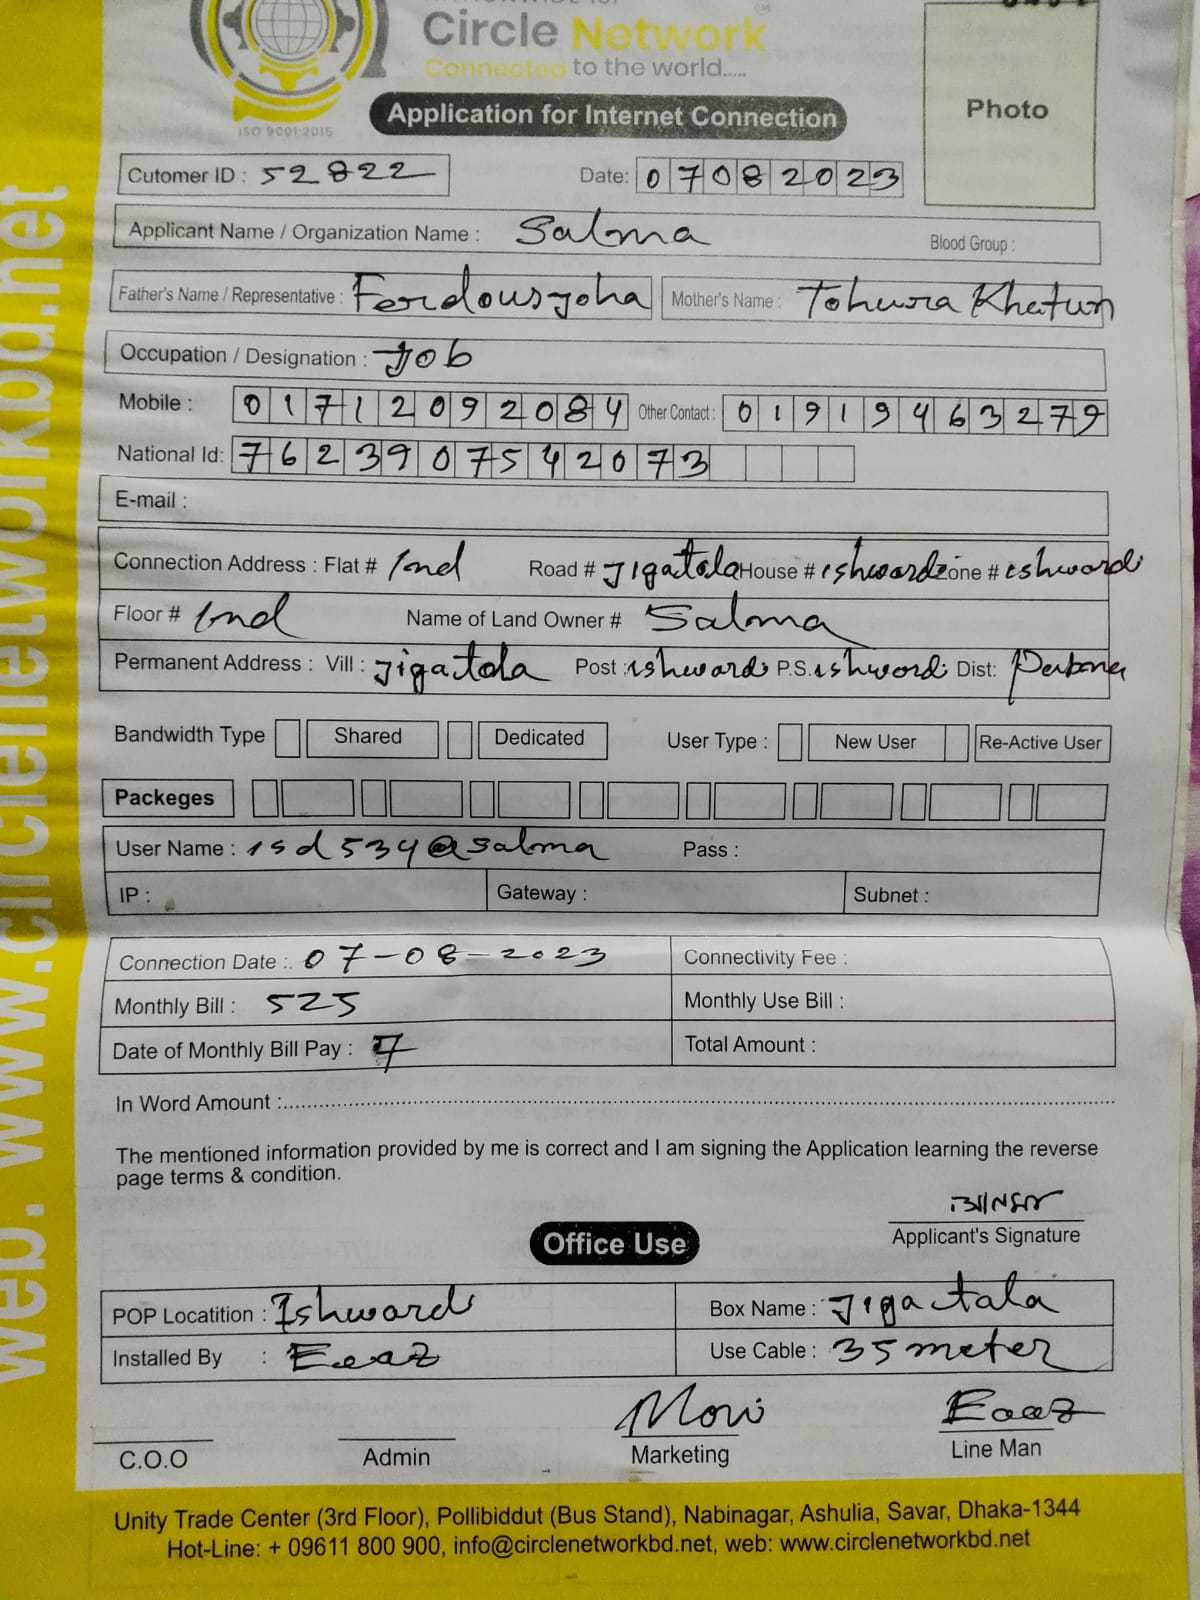 Circle Network
Connected to the world.....
ISO 9001:2015
Application for Internet Connection
Photo
Cutomer ID : 52822 Date: 07082023
Applicant Name / Organization Name : Salma Blood Group :
Father's Name / Representative : Ferdousjoha Mother's Name : Tohura Khatun
Occupation / Designation : Job
Mobile : 01712092084 Other Contact : 01919463279
National Id: 7623907542073
E-mail :
Connection Address : Flat # 1nd Road # Jigatola House # ishwardi Zone # ishwordi
Floor # 1nd Name of Land Owner # Salma
Permanent Address : Vill : Jigatola Post : ishwardi P.S. ishwordi Dist: Pabna
Bandwidth Type Shared Dedicated User Type : New User Re-Active User
Packeges
User Name : isd534@salma Pass :
IP : Gateway : Subnet :
Connection Date : 07-08-2023 Connectivity Fee :
Monthly Bill : 525 Monthly Use Bill :
Date of Monthly Bill Pay : 7 Total Amount :
In Word Amount :
The mentioned information provided by me is correct and I am signing the Application learning the reverse
page terms & condition.
Applicant's Signature
Office Use
POP Locatition : Ishwardi Box Name : Jigactala
Installed By : Eeaz Use Cable : 35 meter
Moni Eaaz
C.O.O Admin Marketing Line Man
Unity Trade Center (3rd Floor), Pollibiddut (Bus Stand), Nabinagar, Ashulia, Savar, Dhaka-1344
Hot-Line: + 09611 800 900, info@circlenetworkbd.net, web: www.circlenetworkbd.net
web: www.circlenetworkbd.net